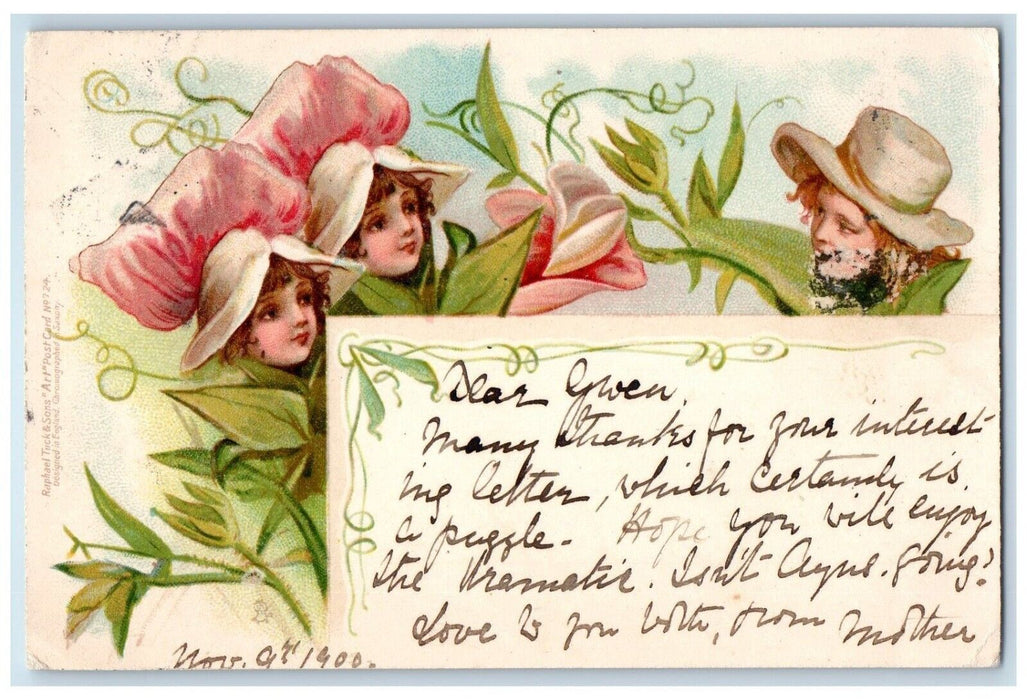 Raphael Tuck & Sons "Art" Post Card No 724.
Designed in England. Chromographed in Saxony.
Dear Gwen,
Many thanks for your interest-
ing letter, which certainly is
a puzzle. Hope you will enjoy
the dramatic. Isn't going?
Love to you both, from Mother
Nov. 9th 1900.